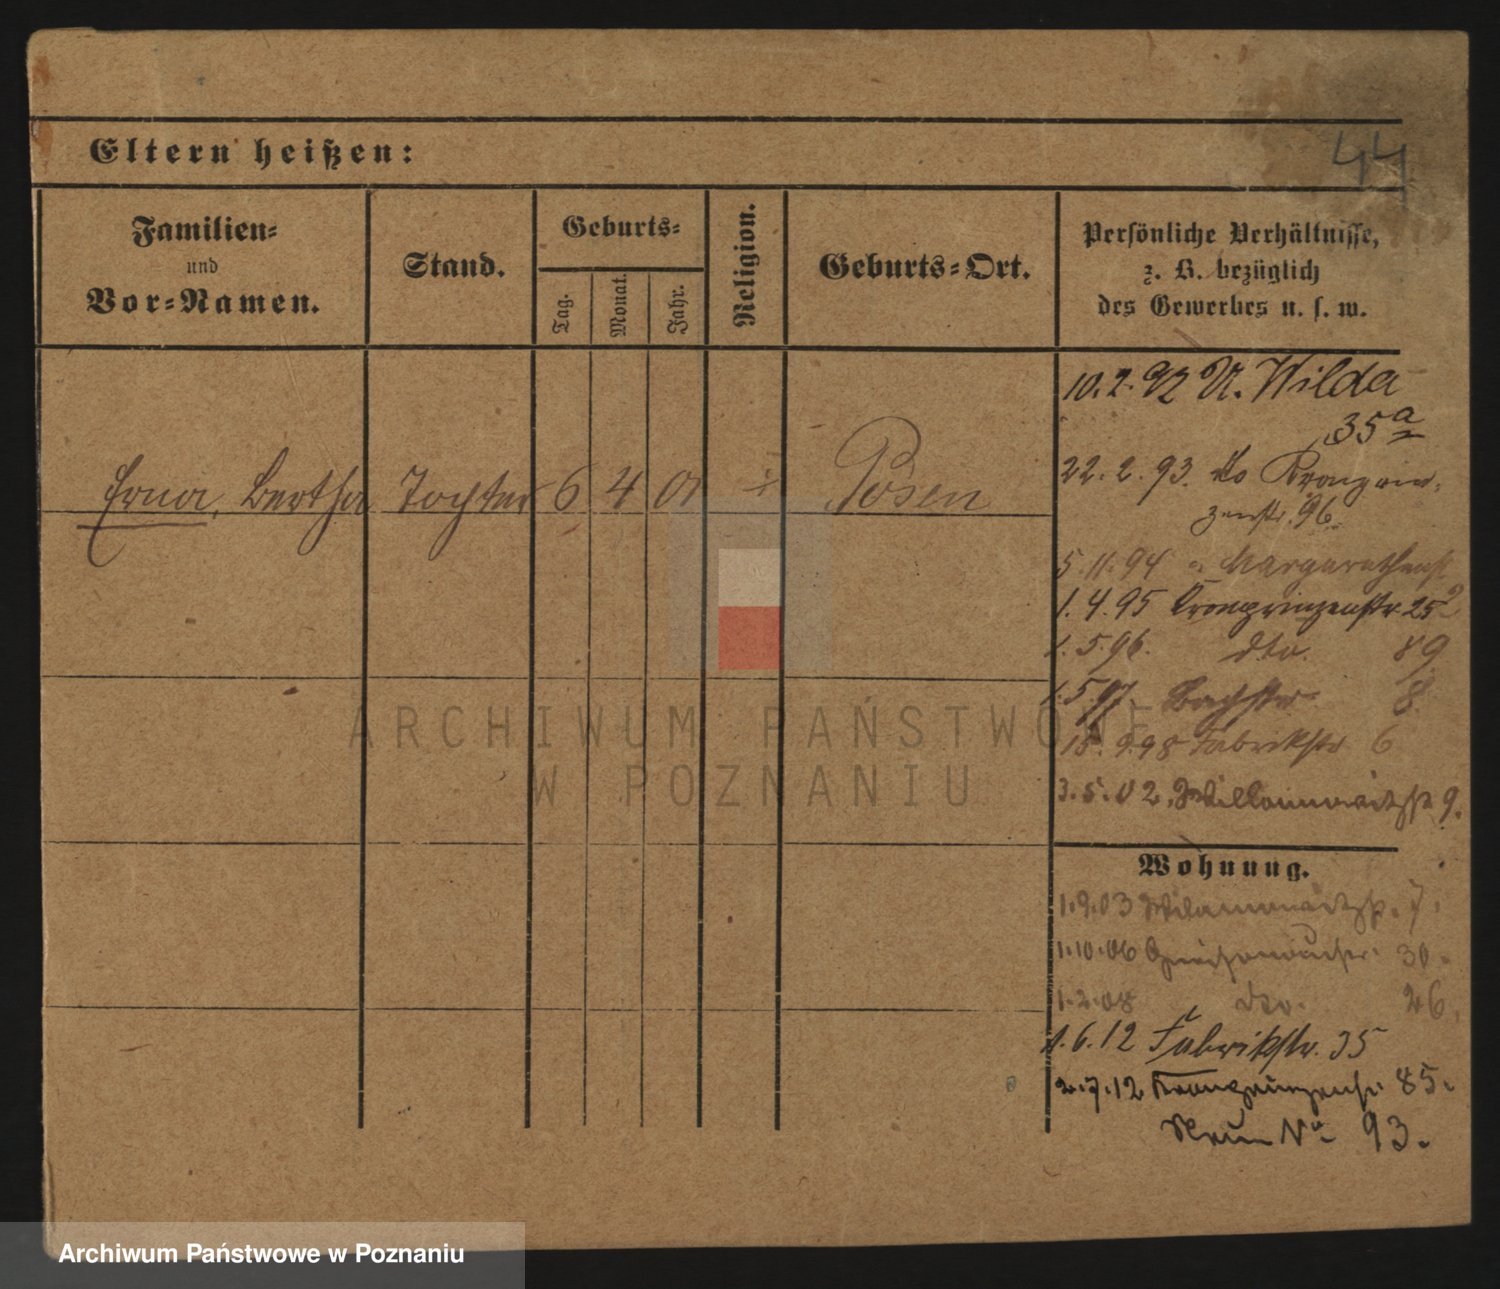 44
Eltern heißen:
Familien-
und
Vor-Namen.
Stand.
Geburts-
Tag.
Monat.
Jahr.
Religion.
Geburts-Ort.
Persönliche Verhältnisse,
z. B. bezüglich
des Gewerbes u. s. w.
10.2.92 U. Wilda
35a
22.2.93. do Kronprin-
zenstr. 96.
Erna, Bertha Tochter 6 4 01 Posen
5.11.94 " Margarethenst.
1.4.95 Kronprinzenstr 25
1.5.96. dto. 89
1.5.97 Bachstr. 8.
15.9.98 Fabrikstr 6
3.5.02. 9.
Wohnung.
1.9.03 7.
1.10.06 30.
1.2.08 dto. 26.
1.6.12 Fabrikstr. 35
2.7.12 Kronprinzenstr. 85.
No 93.
ARCHIWUM PAŃSTWOWE
W POZNANIU
Archiwum Państwowe w Poznaniu